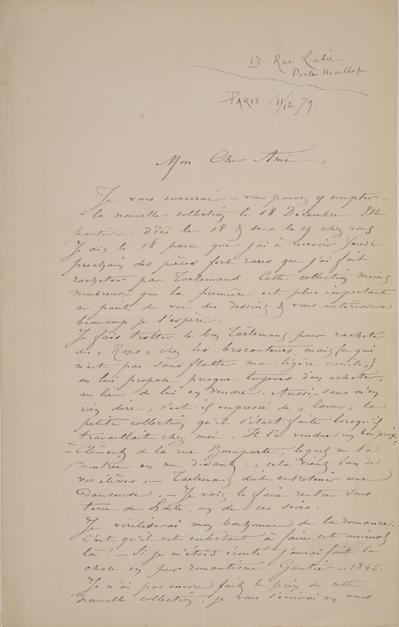 13 Rue Labie
Porte Maillot
Paris 11/12 79
Mon Cher Ami,
Je vous enverrai – vous pouvez y compter –
la nouvelle collection le 18 Décembre. Elle
partira d'ici le 18 & sera le 19 chez vous.
Je dis le 18 parce que j'ai à recevoir Jeudi
prochain des pièces fort rares que j'ai fait
racheter par Taelemans. Cette collection moins
nombreuse que la première est plus importante
au point de vue des dessins & vous intéressera
beaucoup je l'espère.
Je fais trotter le bon Taelemans pour racheter
des „Rops" chez les brocanteurs, mais (ce qui
n'est pas sans flatter ma légère vanité)
on lui propose presque toujours d'en acheter,
au lieu de lui en vendre. Aussi sans m'en
rien dire, s'est-il empressé de „laver" la
petite collection qu'il s'était faite lorsqu'il
travaillait chez moi. Il l'a vendue un bon prix,
à Clément de la rue Bonaparte, lequel me l'a
montrée en me disant: „cela vient d'un de
vos élèves, – Taelemans doit entretenir une
Danseuse. – Je vais le faire rentrer sous
terre de honte, un de ces soirs.
Je
mon bonhomme de la romance.
C'est qu'il est embêtant à faire cet animal
là! – Si je m'étais écouté j'aurai fait la
chose en pur romantisme Gautier – 1835.
Je n'ai pas encore fait le prix de cette
nouvelle collection, je vous l'écrirai en vous